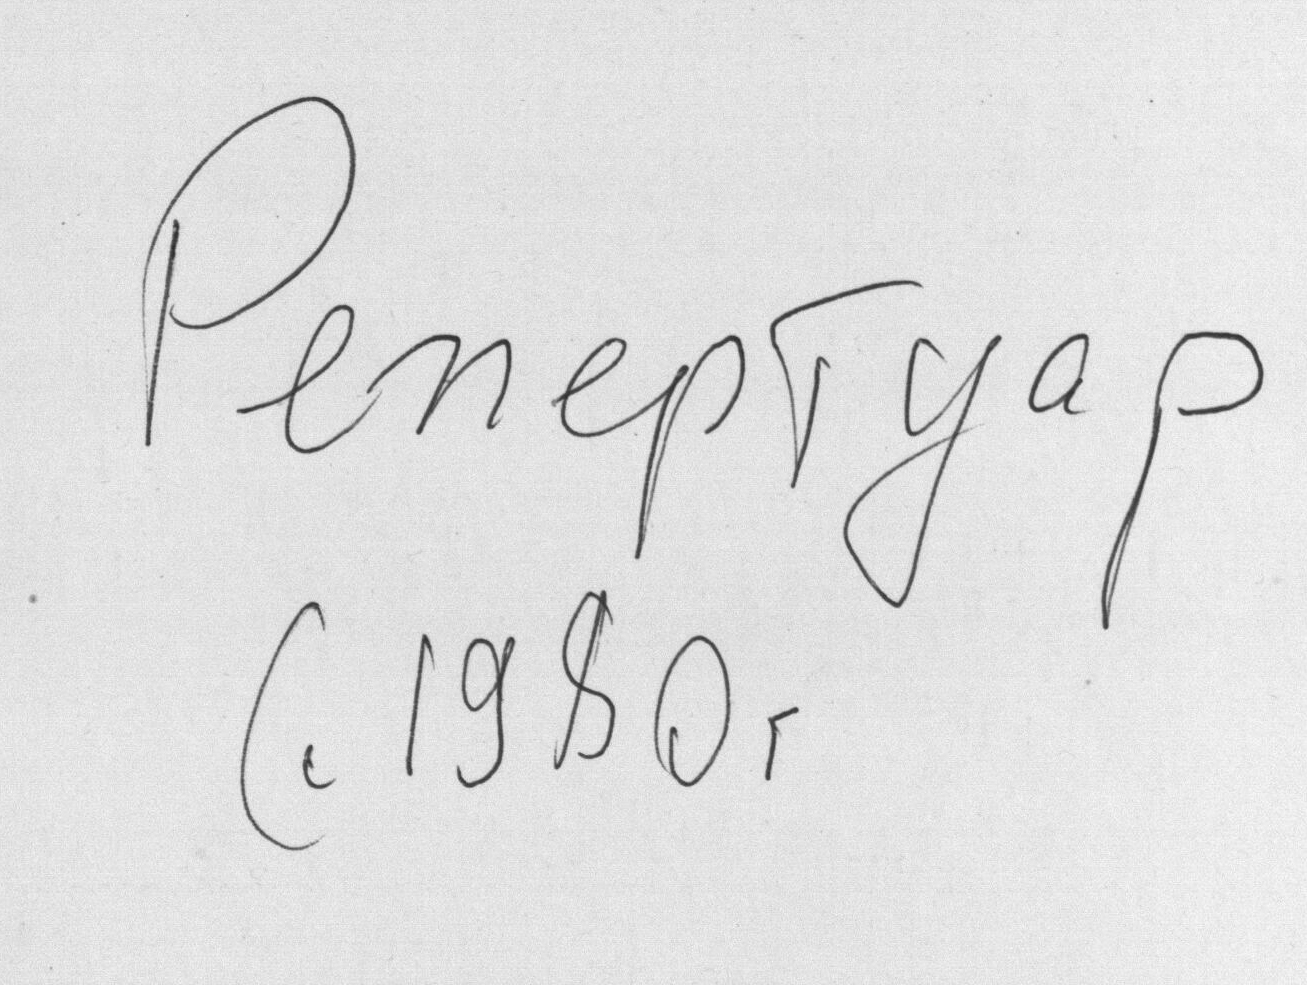 Репертуар
(с 1980 г